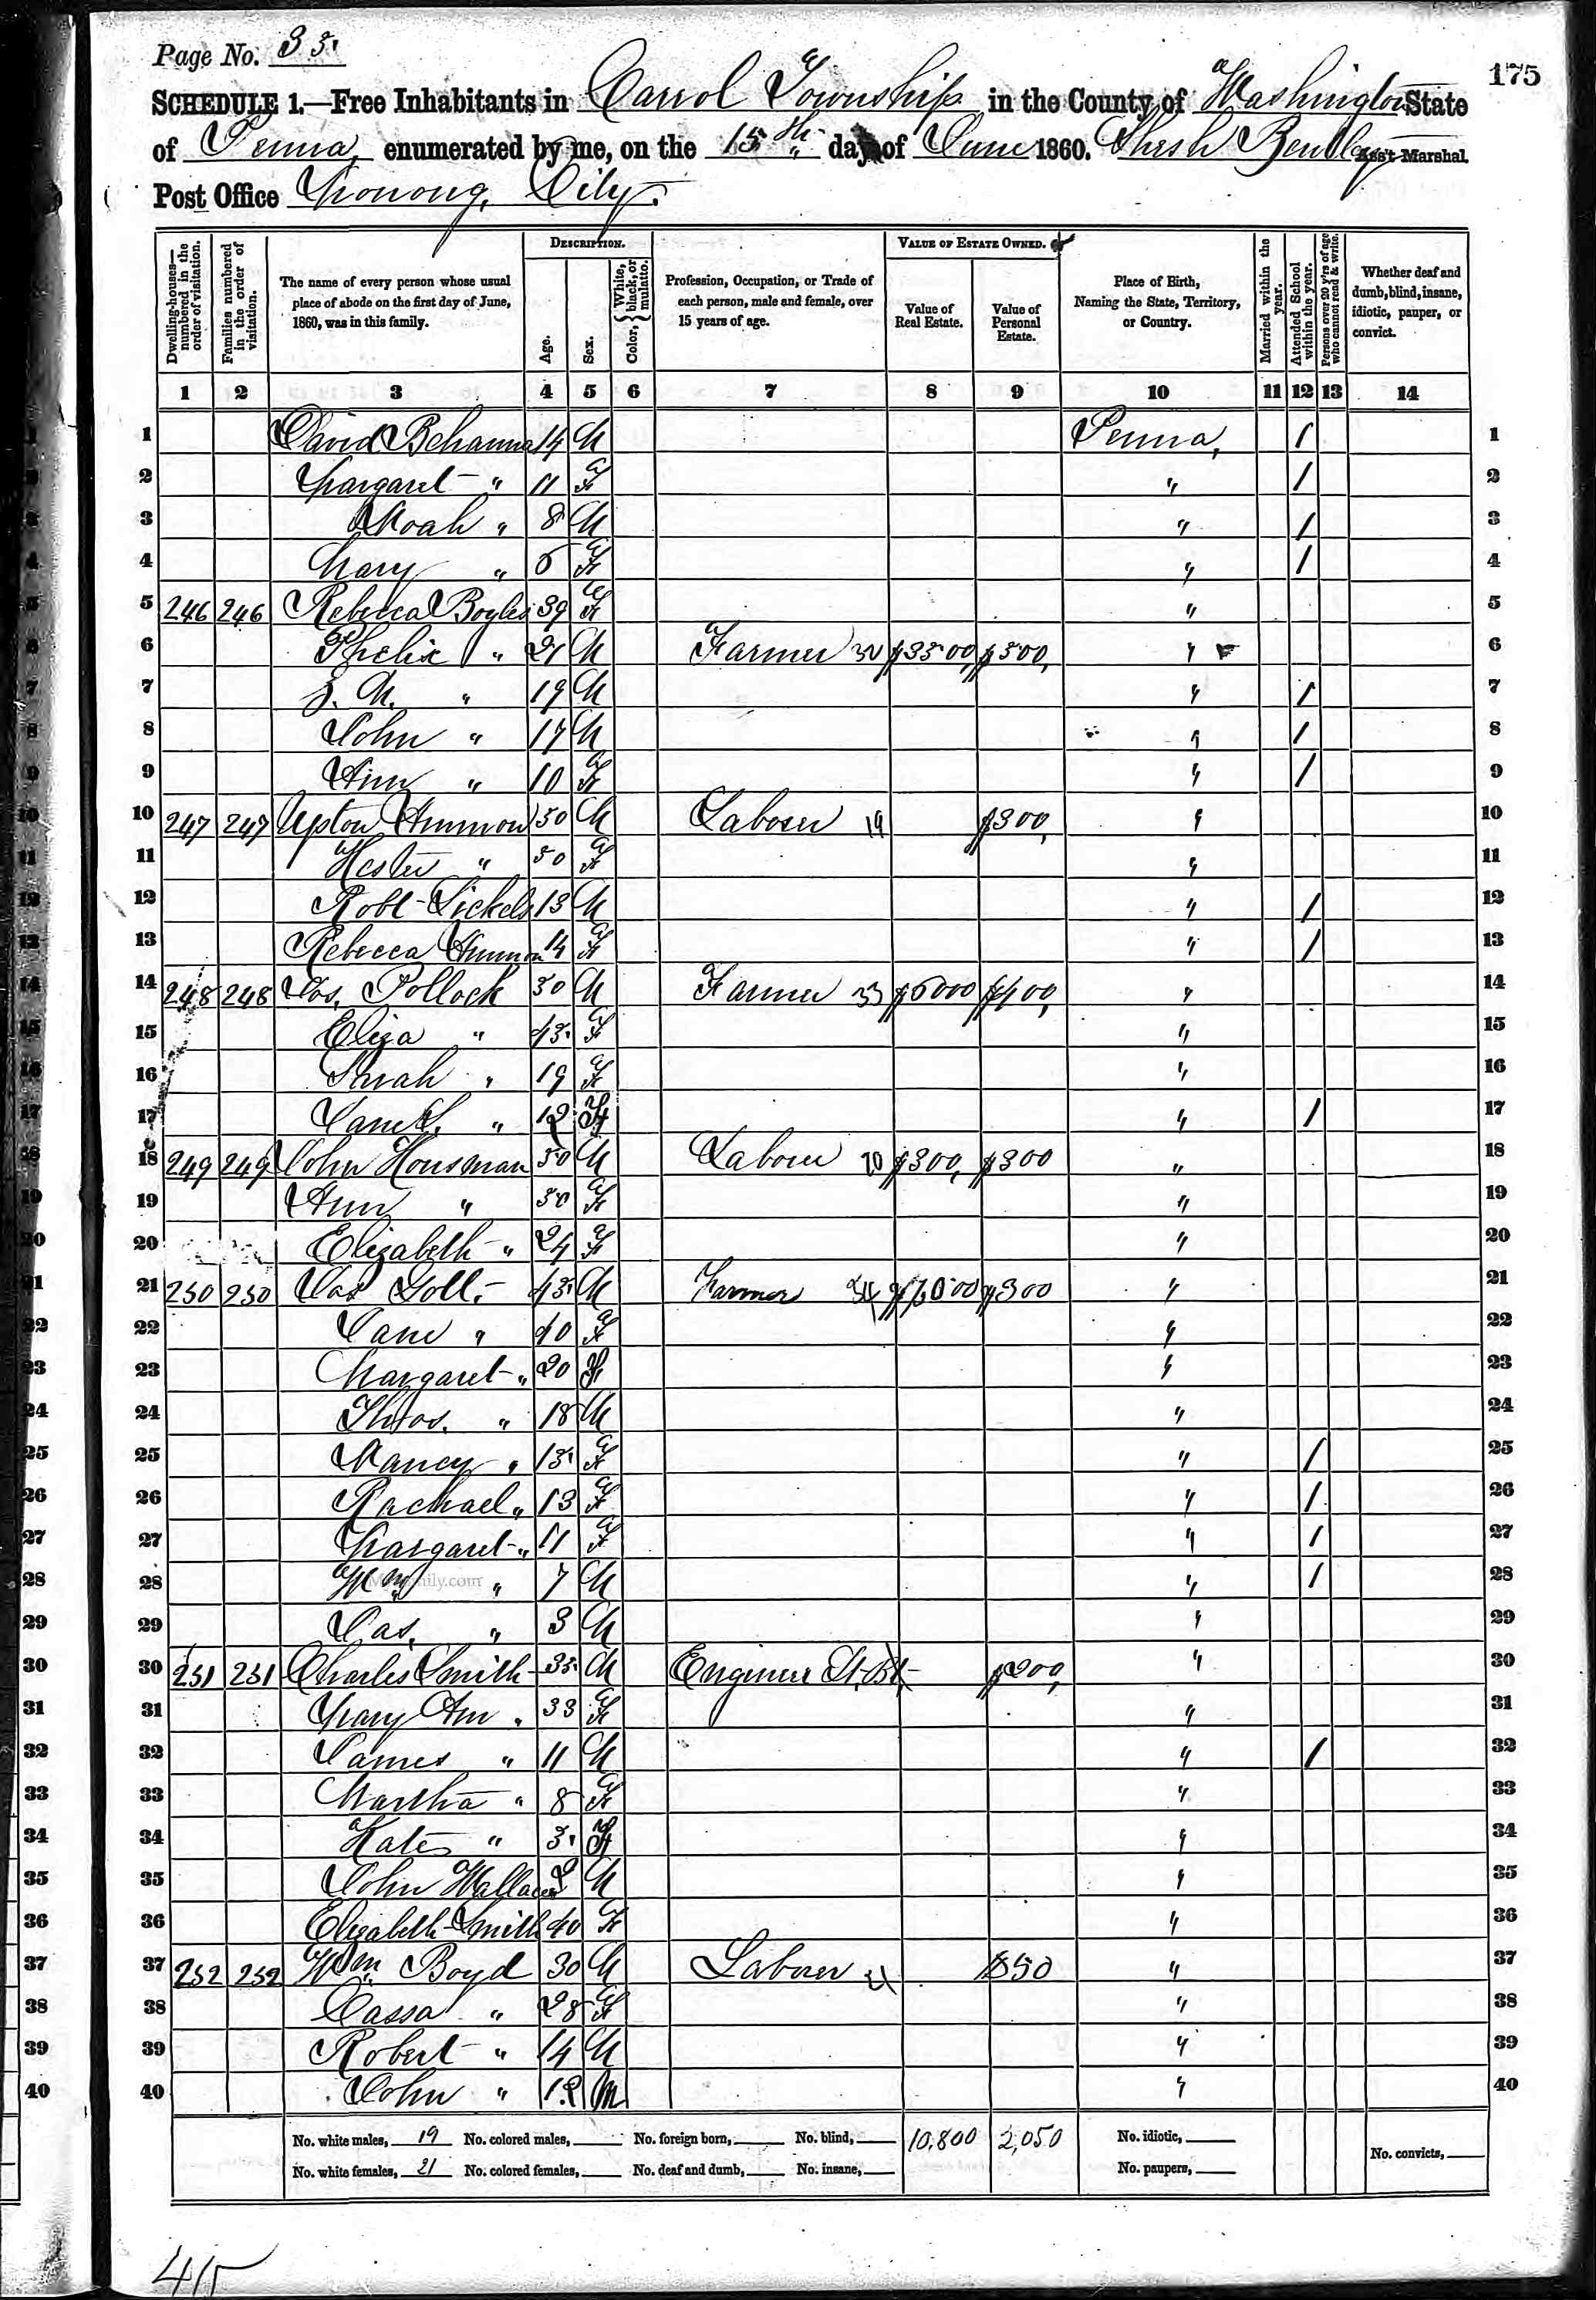 Page No. 35.
175
SCHEDULE 1.—Free Inhabitants in Carrol Township in the County of Washington State
of Penna, enumerated by me, on the 15th day of June 1860. Bentley Ass't Marshal.
Post Office Monong, City.
Dwelling-houses—numbered in the order of visitation.
Families numbered in the order of visitation.
The name of every person whose usual place of abode on the first day of June, 1860, was in this family.
DESCRIPTION.
Age.
Sex.
Color, White, black, or mulatto.
Profession, Occupation, or Trade of each person, male and female, over 15 years of age.
VALUE OF ESTATE OWNED.
Value of Real Estate.
Value of Personal Estate.
Place of Birth, Naming the State, Territory, or Country.
Married within the year.
Attended School within the year.
Persons over 20 y'rs of age who cannot read & write.
Whether deaf and dumb, blind, insane, idiotic, pauper, or convict.
1 2 3 4 5 6 7 8 9 10 11 12 13 14
1 David Behanna 14 M Penna, / 1
2 Margaret " 11 F " / 2
3 Noah " 8 M " / 3
4 Mary " F " / 4
5 246 246 Rebecca Boyles 39 F " 5
6 Phelix " 21 M Farmer 32 $3500, $500, " 6
7 " 19 M " / 7
8 John " 17 M " / 8
9 Ann " 10 F " / 9
10 247 247 Upton Ammon 50 M Laborer 19 $300, " 10
11 Hester " 50 F " 11
12 Robt Sickels 13 M " / 12
13 Rebecca Ammon 14 F " / 13
14 248 248 Jas. Pollock 50 M Farmer 33 $6000 $400, " 14
15 Eliza " 45 F " 15
16 Sarah " 19 F " 16
17 " 12 F " / 17
18 249 249 John Housman 50 M Laborer 20 $300, $300 " 18
19 Ann " 50 F " 19
20 Elizabeth " 24 F " 20
21 250 250 Jas 45 M Farmer 34 $300 " 21
22 Jane " 40 F " 22
23 Margaret " 20 F " 23
24 Thos. " 18 M " 24
25 Nancy " 15 F " / 25
26 Rachael " 13 F " / 26
27 Margaret " 11 F " / 27
28 Wm " 7 M " / 28
29 Jas. " 3 M " 29
30 251 251 Charles Smith 35 M Engineer St. Bt. $200, " 30
31 Mary Ann " 33 F " 31
32 James " 11 M " / 32
33 Martha " 8 F " 33
34 Kate " F " 34
35 John Wallace M " 35
36 Elizabeth Smith 40 F " 36
37 252 252 Wm Boyd 30 M Laborer 21 $50 " 37
38 Cassa " 28 F " 38
39 Robert " 14 M " 39
40 John " 12 M " 40
No. white males, 19 No. colored males, No. foreign born, No. blind, 10,800 2,050 No. idiotic,
No. white females, 21 No. colored females, No. deaf and dumb, No. insane, No. paupers, No. convicts,